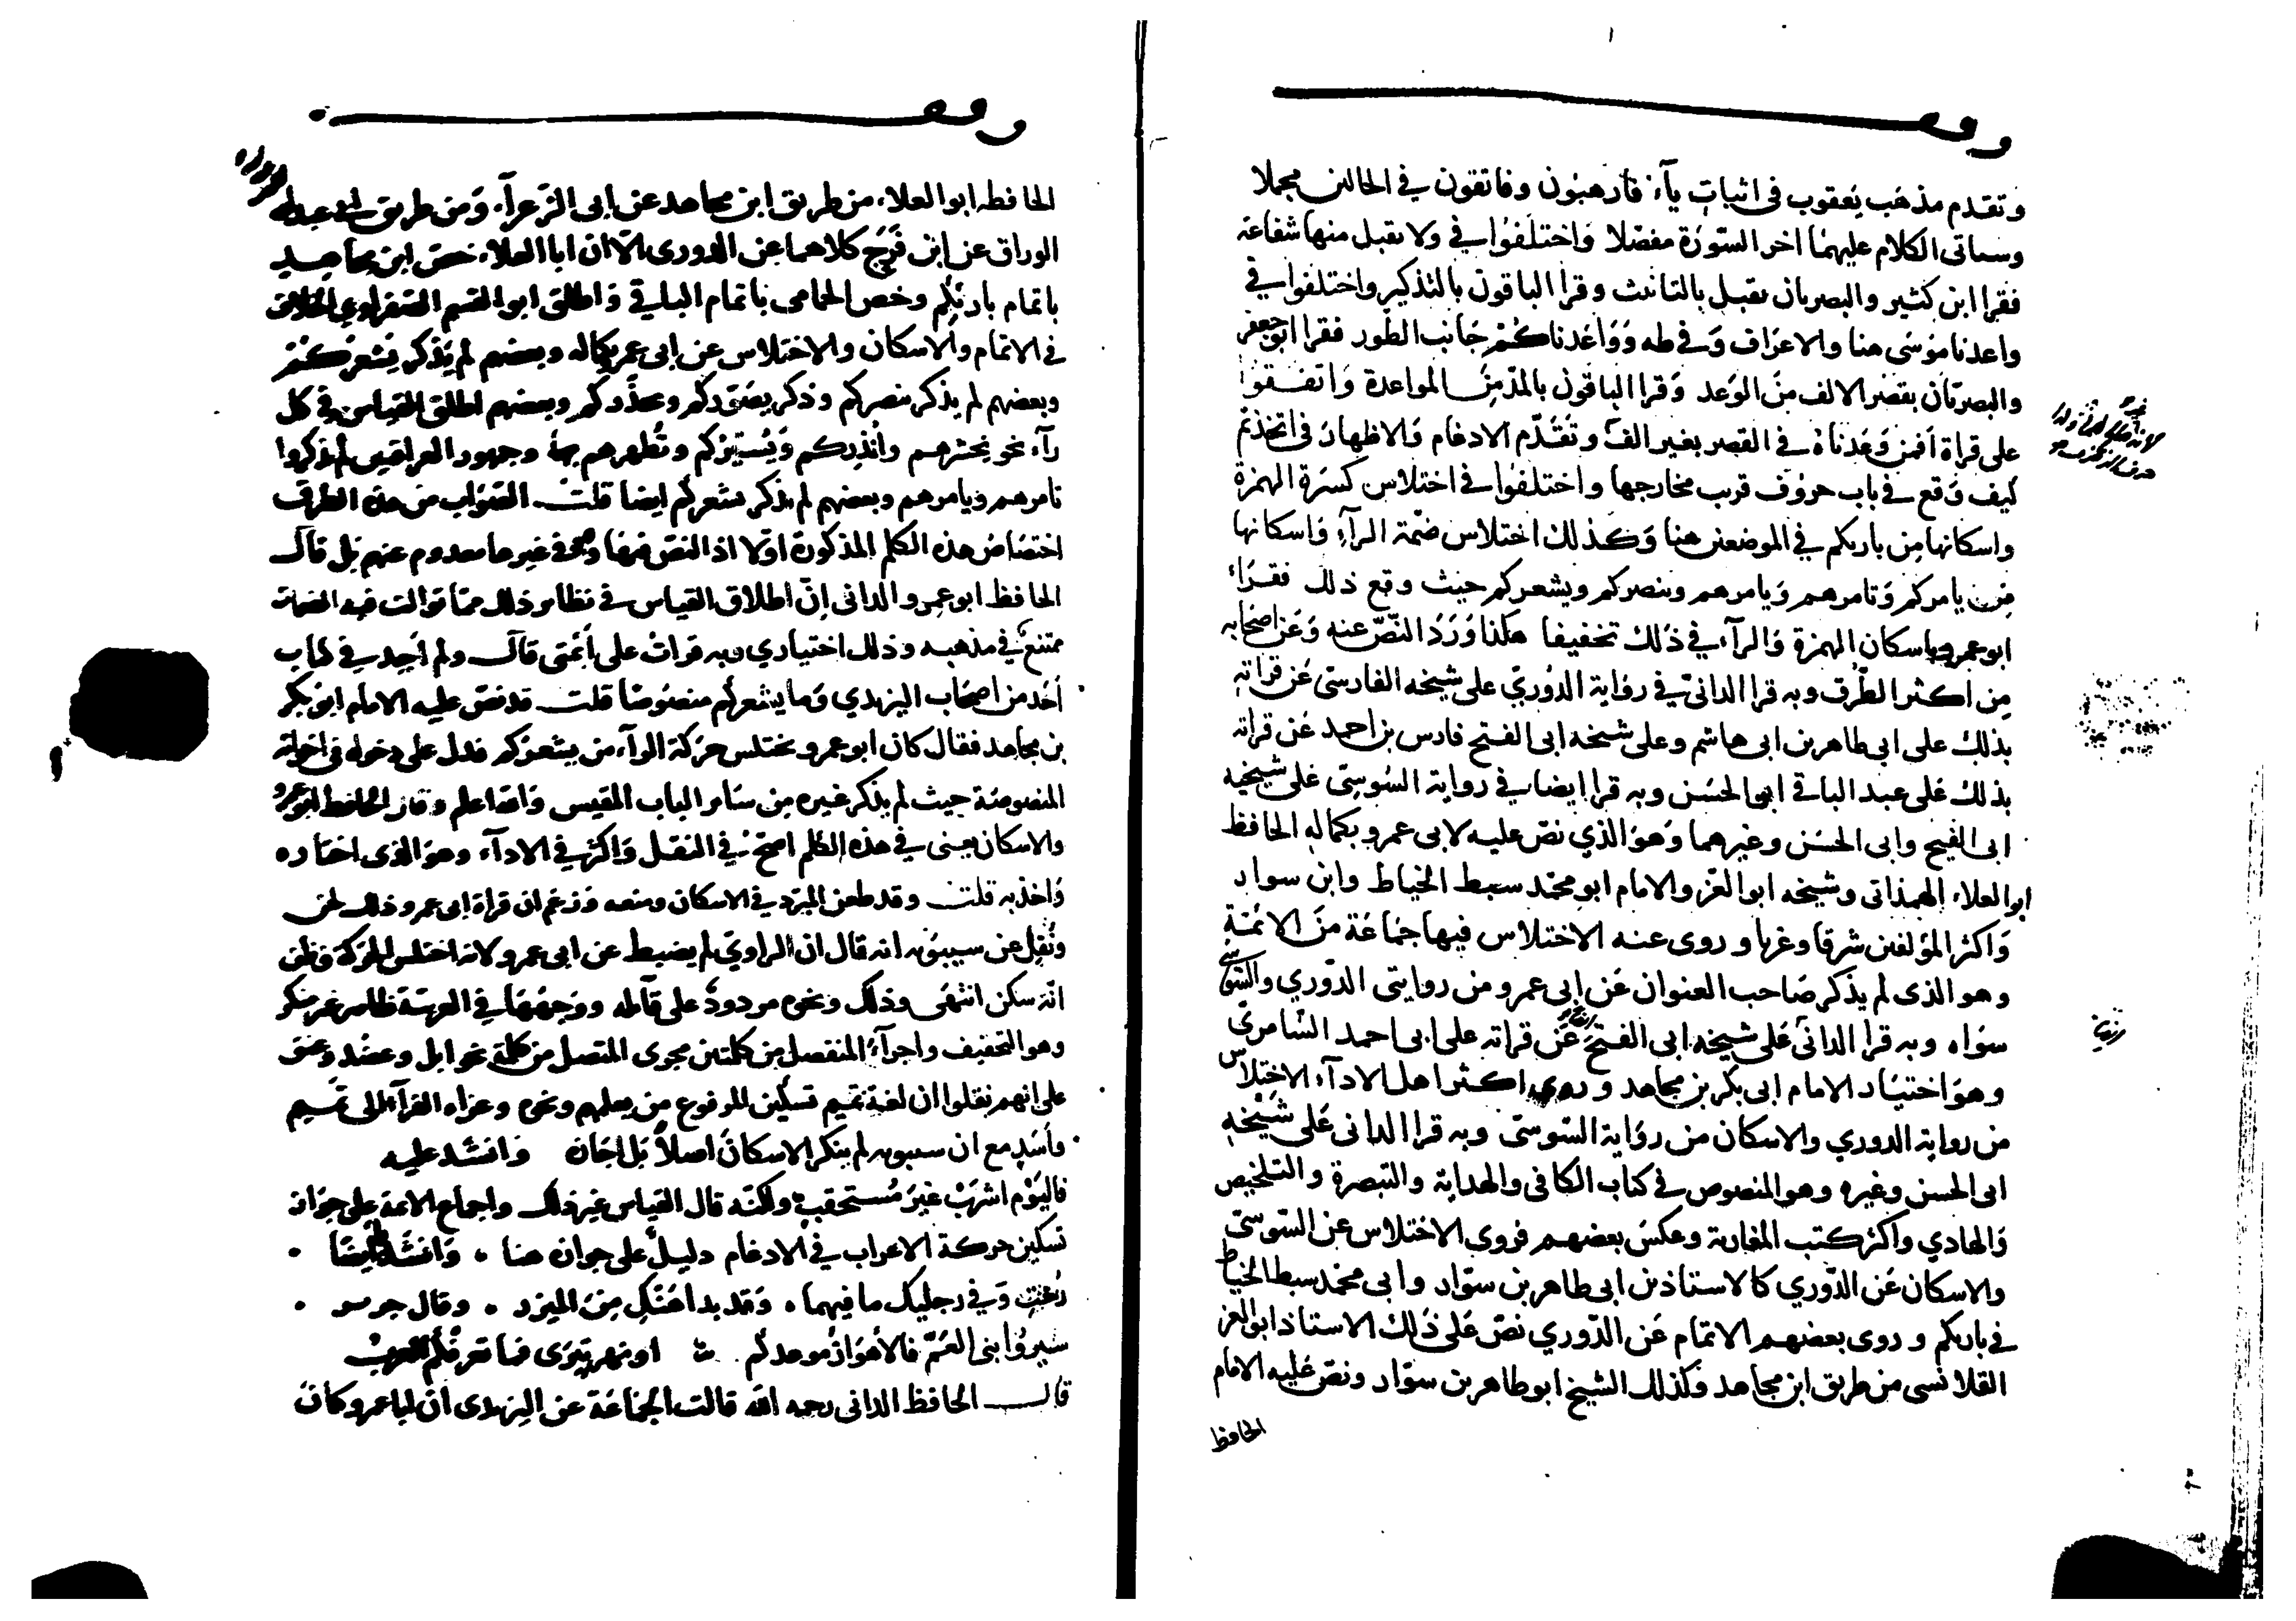 وقف
وتقدم مذهب يعقوب في اثبات يآء فارهبون وفاتقون في الحالين مجملا
وسياتي الكلام عليهما اخر السورة مفصلا واختلفوا في ولا يقبل منها شفاعة
فقرا ابن كثير والبصريان تقبل بالتانيث وقرا الباقون بالتذكير واختلفوا في
واعدنا موسى هنا والاعراف وفي طه وواعدناكم جانب الطور فقرا ابو جعفر
والبصريان بقصر الالف من الوعد وقرا الباقون بالمد من المواعدة واتفقوا
على قراة افمن وعدناه في القصر بغير الف وتقدم الادغام والاظهار في اتخذتم
كيف وقع في باب حروف قربت مخارجها واختلفوا في اختلاس كسرة الهمزة
واسكانها من بارئكم في الموضعين هنا وكذلك اختلاس ضمة الرآء واسكانها
من يامركم وتامرهم ويامرهم وينصركم ويشعركم حيث وقع ذلك فقراء
ابو عمرو باسكان الهمزة والرآء في ذلك تخفيفا هكذا ورد النص عنه وعن اصحابه
من اكثر الطرق وبه قرا الداني في رواية الدوري على شيخه الفارسي عن قراته
بذلك على ابي طاهر بن ابي هاشم وعلى شيخه ابي الفتح فارس بن احمد عن قراته
بذلك على عبد الباقي ابن الحسن وبه قرا ايضا في رواية السوسي على شيخيه
ابي الفتح وابي الحسن وغيرهما وهو الذي نص عليه لابي عمرو بكماله الحافظ
ابو العلاء الهمذاني وشيخه ابو العز والامام ابو محمد سبط الخياط وابن سوار
واكثر المؤلفين شرقا وغربا وروى عنه الاختلاس فيها جماعة من الائمة
وهو الذي لم يذكر صاحب العنوان عن ابي عمرو من روايتي الدوري والسوسي
سواه وبه قرا الداني على شيخه ابي الفتح ايضا عن قراته على ابي احمد السامري
وهو اختيار الامام ابي بكر بن مجاهد وروى اكثر اهل الادآء الاختلاس
من رواية الدوري والاسكان من رواية السوسي وبه قرا الداني على شيخه
ابي الحسن وغيره وهو المنصوص في كتاب الكافي والهداية والتبصرة والتلخيص
والهادي واكثر كتب المغاربة وعكس بعضهم فروى الاختلاس عن السوسي
والاسكان عن الدوري كالاستاذين ابي طاهر بن سوار وابي محمد سبط الخياط
في بارئكم وروى بعضهم الاتمام عن الدوري نص على ذلك الاستاذ ابو العز
القلانسي من طريق ابن مجاهد وكذلك الشيخ ابو طاهر بن سوار ونص عليه الامام
الحافظ
وقف
الحافظ ابو العلاء من طريق ابن مجاهد عن ابي الزعرآء ومن طريق
الوراق عن ابن فرج كلاهما عن الدوري الا ان ابا العلاء خص ابن مجاهد
باتمام بارئكم وخص الحمامي باتمام الباقي واطلق ابو القسم الصفراوي الخلاف
في الاتمام والاسكان والاختلاس عن ابي عمرو بكماله وبعضهم لم يذكر يشعركم
وبعضهم لم يذكر ينصركم وذكر يصوركم ويحذركم وبعضهم اطلق القياس في كل
رآء نحو يحشرهم وانذركم ويسيركم وتطهرهم وجمهور العراقيين لم يذكروا
تامرهم ويامرهم وبعضهم لم يذكر يشعركم ايضا قلت الصواب من هذه الطرق
اختصاص هذه الكلم المذكورة اولا اذ النص فيها وهو في غيرها معدوم عنهم بل قال
الحافظ ابو عمرو الداني ان اطلاق القياس في نظائر ذلك مما توالت فيه الضمات
ممتنع في مذهبه وذلك اختياري وبه قرات على ائمتي قال ولم اجد في كتاب
احد من اصحاب اليزيدي وما يشعركم منصوصا قلت قد نص عليه الامام ابو بكر
بن مجاهد فقال كان ابو عمرو يختلس حركة الرآء من يشعركم فدل على دخوله في اخواته
المنصوصة حيث لم يذكر غيره من سائر الباب المقيس والله اعلم وقال الحافظ ابو عمرو
والاسكان يعني في هذه الكلم اصح في النقل واكثر في الادآء وهو الذي اختاره
واخذ به قلت وقد طعن المبرد في الاسكان ومنعه وزعم ان قراة ابي عمرو ذلك لحن
ونقل عن سيبويه انه قال ان الراوي لم يضبط عن ابي عمرو لانه اختلس الحركة فظن
انه سكن انتهى وذلك ونحوه مردود على قائله ووجهها في العربية ظاهر غير منكر
وهو التخفيف واجرآء المنفصل من كلمتين مجرى المتصل من كلمة نحو ابل وعضد وعنق
على انهم نقلوا ان لغة تميم تسكين المرفوع من يعلمهم ونحوه وعزاه الفرآء الى تميم
واسد مع ان سيبويه لم ينكر الاسكان اصلا بل اجازه وانشد عليه
فاليوم اشرب غير مستحقب ولكنه قال القياس غير ذلك واجماع الائمة على جواز
تسكين حركة الاعراب في الادغام دليل على جوازه هنا ۰ وانشد ايضا ۰
رحت وفي رجليك ما فيهما ۰ وقد بدا هنك من الميزر ۰ وقال جرير ۰
سيروا بني العم فالاهواز موعدكم او نهر تيرى فما تعرفكم العرب
قال الحافظ الداني رحمه الله قالت الجماعة عن اليزيدي ان ابا عمرو كان